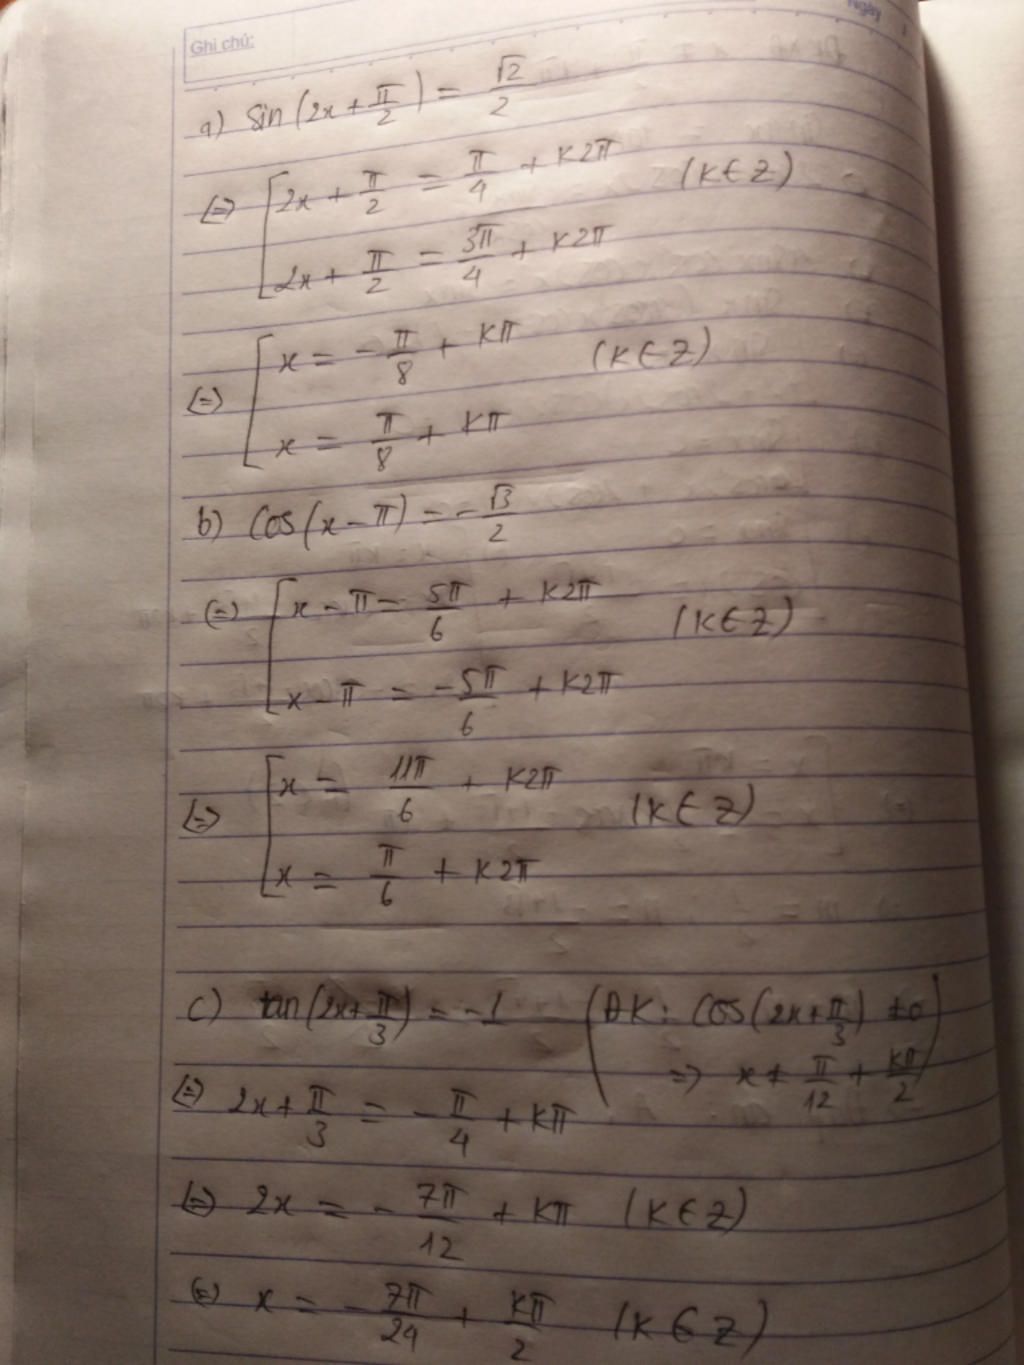 Ngày
Ghi chú:
a) sin(2x + π/2) = √2/2
(=) [ 2x + π/2 = π/4 + k2π (k∈Z)
2x + π/2 = 3π/4 + k2π
(=) [ x = -π/8 + kπ (k∈Z)
x = π/8 + kπ
b) cos(x - π) = -√3/2
(=) [ x - π = 5π/6 + k2π (k∈Z)
x - π = -5π/6 + k2π
(=) [ x = 11π/6 + k2π (k∈Z)
x = π/6 + k2π
c) tan(2x + π/3) = -1 (ĐK: cos(2x + π/3) ≠ 0
=> x ≠ π/12 + kπ/2)
(=) 2x + π/3 = -π/4 + kπ
(=) 2x = -7π/12 + kπ (k∈Z)
(=) x = -7π/24 + kπ/2 (k∈Z)